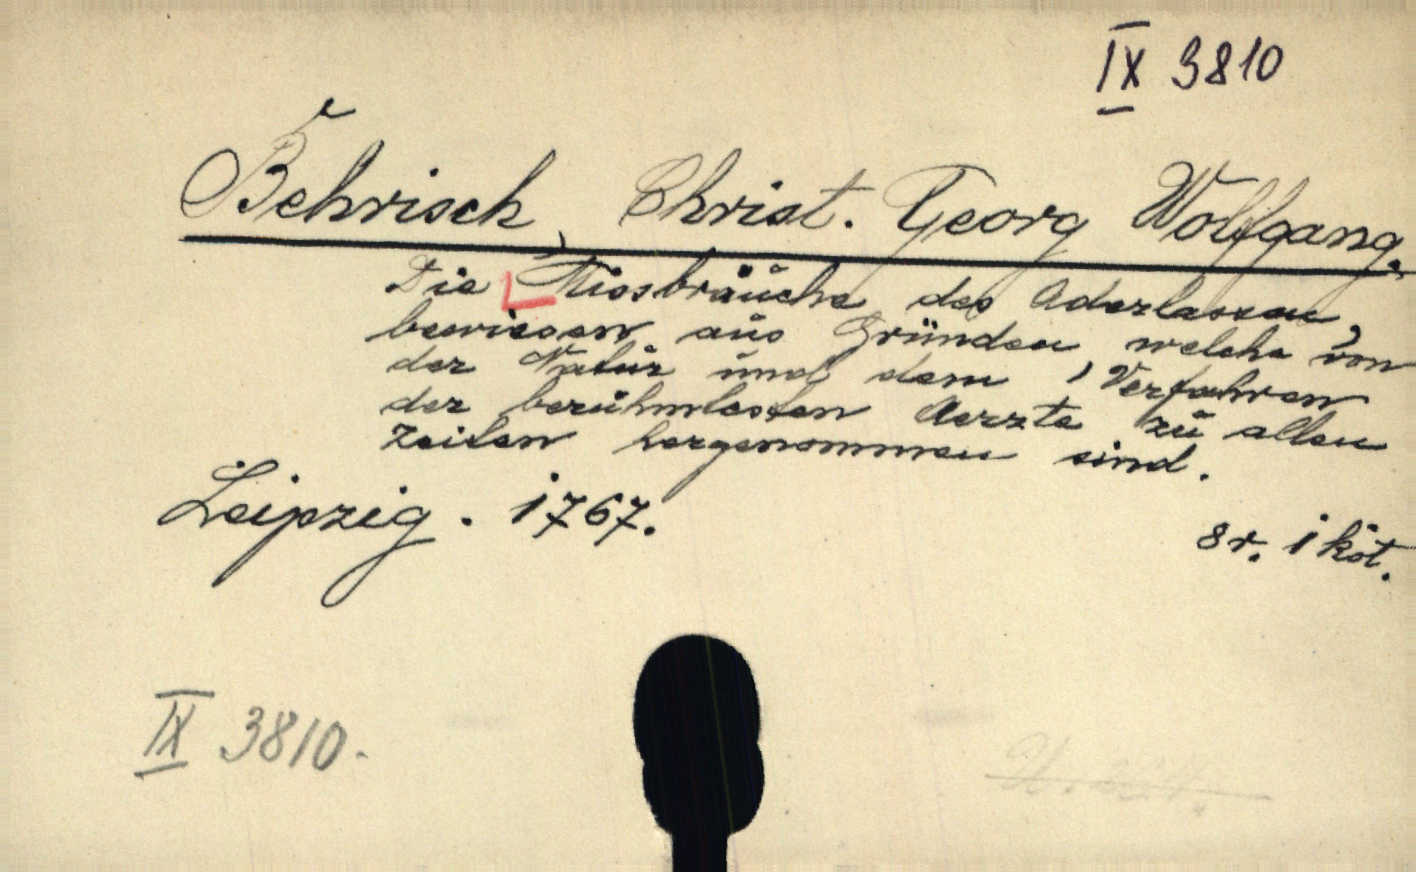 IX 3810
Behrisch, Christ. Georg Wolfgang.
Die Missbräuche des Aderlassen,
bewiesen aus Gründen, welche von
der Natur und dem Verfahren
der berühmtesten Aerzte zu allen
Zeiten hergenommen sind.
Leipzig. 1767.
8r. 1 köt.
IX 3810.